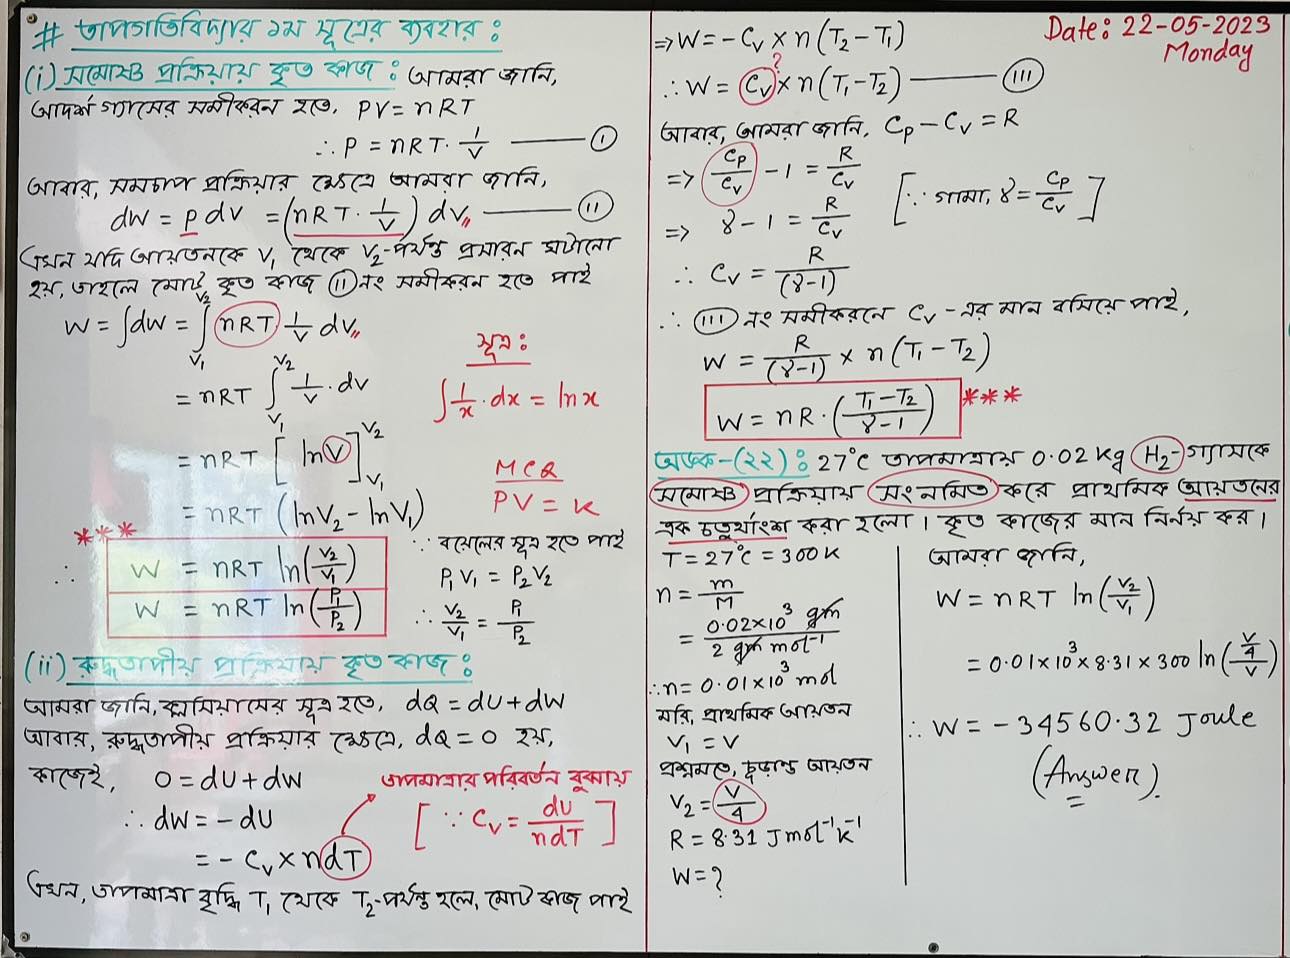 # তাপগতিবিদ্যার ১ম সূত্রের ব্যবহার :
(i) সমোষ্ণ প্রক্রিয়ায় কৃত কাজ : আমরা জানি,
আদর্শ গ্যাসের সমীকরন হতে, PV = nRT
∴ P = nRT · 1/V —— (I)
আবার, সমচাপ প্রক্রিয়ার ক্ষেত্রে আমরা জানি,
dW = P dV = (nRT · 1/V) dV,, —— (II)
এখন যদি আয়তনকে V₁ থেকে V₂-পর্যন্ত প্রসারন ঘটানো
হয়, তাহলে মোট কৃত কাজ (II) নং সমীকরন হতে পাই
W = ∫dW = ∫_{V₁}^{V₂} nRT 1/V dV,,
= nRT ∫_{V₁}^{V₂} 1/V · dV
সূত্র :
∫ 1/x · dx = ln x
= nRT [ lnV ]_{V₁}^{V₂}
= nRT (lnV₂ - lnV₁)
MCQ
PV = K
***
∴ W = nRT ln(V₂/V₁)
W = nRT ln(P₁/P₂)
∵ বয়েলের সূত্র হতে পাই
P₁V₁ = P₂V₂
∴ V₂/V₁ = P₁/P₂
(ii) রুদ্ধতাপীয় প্রক্রিয়ায় কৃত কাজ :
আমরা জানি, ক্লসিয়াসের সূত্র হতে, dQ = dU + dW
আবার, রুদ্ধতাপীয় প্রক্রিয়ার ক্ষেত্রে, dQ = 0 হয়,
কাজেই, 0 = dU + dW
∴ dW = - dU
= - Cv × ndT
তাপমাত্রার পরিবর্তন বুঝায়
[ ∵ Cv = dU/ndT ]
এখন, তাপমাত্রা বৃদ্ধি T₁ থেকে T₂-পর্যন্ত হলে, মোট কাজ পাই
Date: 22-05-2023
Monday
⇒ W = - Cv × n (T₂ - T₁)
?
∴ W = Cv × n (T₁ - T₂) —— (III)
আবার, আমরা জানি, Cp - Cv = R
⇒ Cp/Cv - 1 = R/Cv
⇒ γ - 1 = R/Cv
[ ∵ গামা, γ = Cp/Cv ]
∴ Cv = R/(γ-1)
∴ (III) নং সমীকরনে Cv - এর মান বসিয়ে পাই,
W = R/(γ-1) × n (T₁ - T₂)
W = nR · (T₁ - T₂/γ - 1) ***
অংক-(২২) : 27°C তাপমাত্রায় 0.02 kg H₂-গ্যাসকে
সমোষ্ণ প্রক্রিয়ায় সংনমিত করে প্রাথমিক আয়তনের
এক চতুর্থাংশ করা হলো। কৃত কাজের মান নির্নয় কর।
T = 27°C = 300 K
n = m/M
= 0.02×10³ gm/2 gm mol⁻¹
∴ n = 0.01×10³ mol
ধরি, প্রাথমিক আয়তন
V₁ = V
প্রশ্নমতে, চূড়ান্ত আয়তন
V₂ = V/4
R = 8.31 J mol⁻¹ K⁻¹
W = ?
আমরা জানি,
W = nRT ln(V₂/V₁)
= 0.01×10³×8.31×300 ln(V/4/V)
∴ W = - 34560.32 Joule
(Answer).